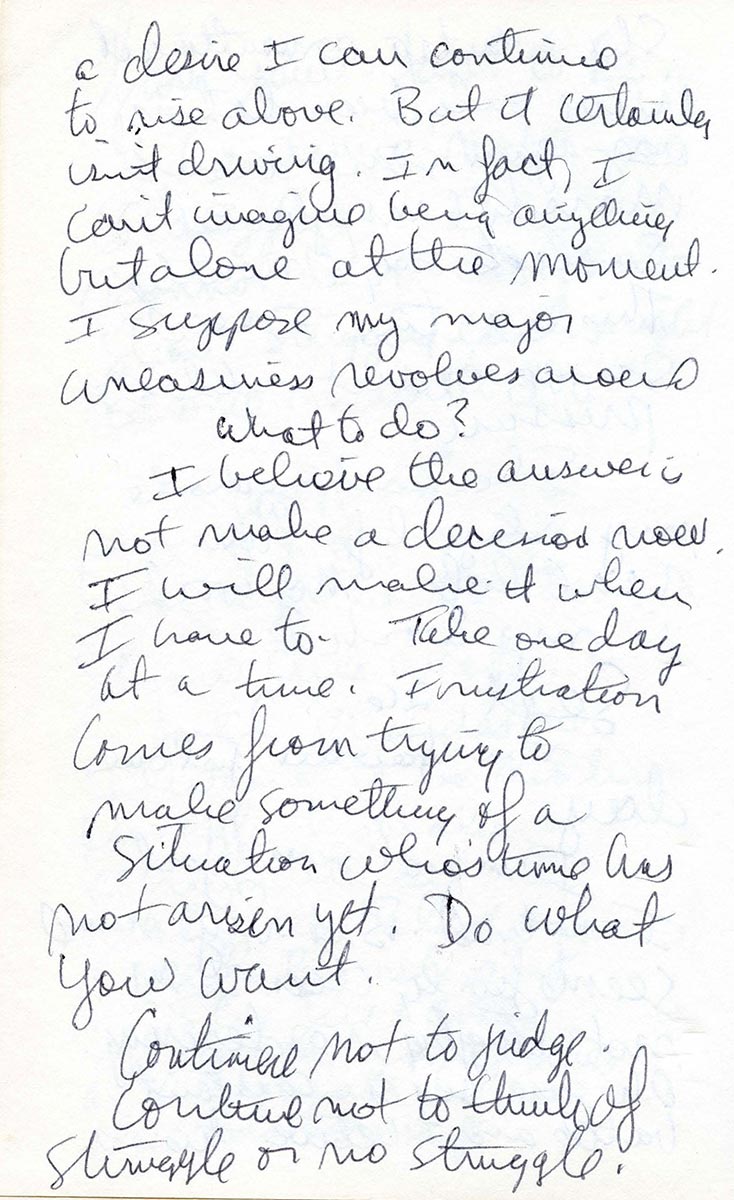 a desire I can continue
to rise above. But it certainly
isn't driving. In fact, I
can't imagine being anything
but alone at the moment.
I suppose my major
uneasiness revolves around
what to do?
I believe the answer is
not make a decision now.
I will make it when
I have to. Take one day
at a time. Frustration
comes from trying to
make something of a
situation who's time has
not arisen yet. Do what
you want.
Continue not to judge.
Continue not to think of
struggle or no struggle.